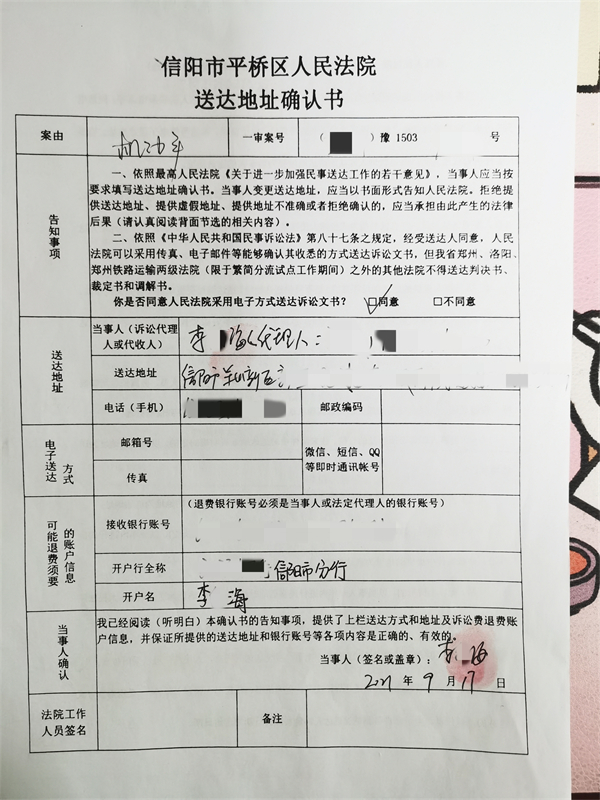 信阳市平桥区人民法院
送达地址确认书
案由 机动车 一审案号 （ ）豫 1503 号
告知事项
一、依照最高人民法院《关于进一步加强民事送达工作的若干意见》，当事人应当按
要求填写送达地址确认书。当事人变更送达地址，应当以书面形式告知人民法院。拒绝提
供送达地址、提供虚假地址、提供地址不准确或者拒绝确认的，应当承担由此产生的法律
后果（请认真阅读背面节选的相关内容）。
二、依照《中华人民共和国民事诉讼法》第八十七条之规定，经受送达人同意，人民
法院可以采用传真、电子邮件等能够确认其收悉的方式送达诉讼文书，但我省郑州、洛阳、
郑州铁路运输两级法院（限于繁简分流试点工作期间）之外的其他法院不得送达判决书、
裁定书和调解书。
你是否同意人民法院采用电子方式送达诉讼文书？ ☑同意 □不同意
送达地址
当事人（诉讼代理
人或代收人）
李 海 代理人：
送达地址 信阳市
电话（手机） 邮政编码
电子送达方式
邮箱号
微信、短信、QQ
等即时通讯帐号
传真
可能退费须要的账户信息
（退费银行账号必须是当事人或法定代理人的银行账号）
接收银行账号
开户行全称 信阳市分行
开户名 李 海
当事人确认
我已经阅读（听明白）本确认书的告知事项，提供了上栏送达方式和地址及诉讼费退费账
户信息，并保证所提供的送达地址和银行账号等各项内容是正确的、有效的。
当事人（签名或盖章）：李 海
2021 年 9 月 17 日
法院工作
人员签名
备注